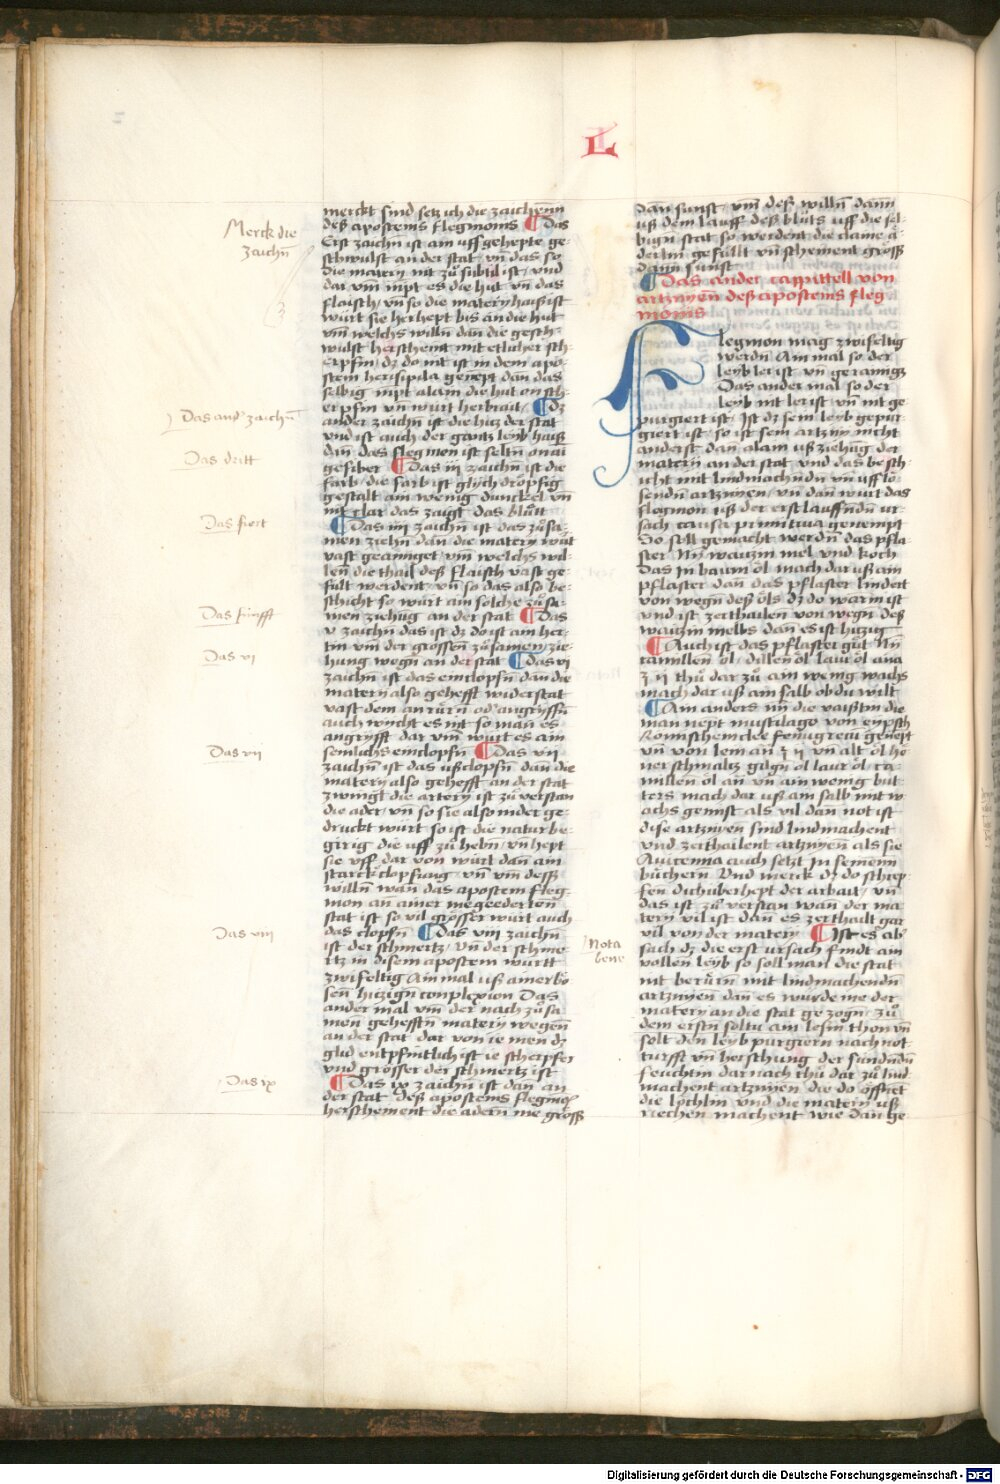 L
Merck die
zaichn̄
Das and̾ zaichn̄
Das dritt
Das fiert
Das fünfft
Das vi
Das vii
Das viii
Das ix
merckt sind setz ich die zaichenn
deß apostems flegmonis ¶ Das
Erst zaichn̄ ist ain uff gehepte ge-
schwulst an der stat / vn̄ das so
die matery nit zů subtil ist / vnd
dar vm̄ nipt es die hut vn̄ das
flaisch / vn̄ so die matery haiß ist
würt sie her hept bis an die hut
vm̄ welchs willn̄ dan die gesch-
wulst herscheint mit etlicher sch-
erpfin / dz do nit ist in dem apo-
stem herisipila genēpt dan das
selbig nipt alain die hut on sch-
erpfin vn̄ würt herbrait / ¶ Dz
ander zaichn̄ ist die hicz der stat
vnd ist auch der gantz leyb haiß
dan̄ das flegmon ist seltn̄ on ain
gefiber ¶ Das iij zaichn̄ ist die
farb / die farb ist glych dröpfig
gestalt ain wenig dunckel vn̄
nit clar das zaigt das blůtt
¶ Das iiij zaichn̄ ist das zůsa-
men ziehn̄ dan die matery würt
vast geainiget / vm̄ welchs wil-
len̄ die thail deß flaisch vast ge-
fült werdent / vn̄ so das also be-
schicht so würt ain solche zůsa-
men ziehung an der stat ¶ Das
v zaichn̄ das ist dz do ist ain her-
tin vm̄ der grossen̄ zůsamen zie-
hung wegn̄ an der stat ¶ Das vi
zaichn̄ ist das einclopfn̄ dan die
matery also gehefft widerstat
vast dem an rürn̄ od̾ angryffn̄
auch wycht es nit so man es
angryfft dar vm̄ würt es ain
semlichs einclopfn̄ ¶ Das vii
zaichn̄ ist das ußclopfn̄ dan̄ die
matery also gehefft an der stat
zwingt die artery ist zů verstan
die ader / vn̄ so sie also nider ge-
druckt würt so ist die natur be-
girig die uff zů hebn̄ vn̄ hept
sie vff dar von würt dan̄ ain
starck clopfung / vn̄ vm̄ deß
willn̄ wan̄ das apostem fleg-
mon an ainer me geederten̄
stat ist so vil grösser würt auch
das clopfn̄ ¶ Das viii zaichn̄
ist der schmertz / vn̄ der schme-
rtz in disem apostem württ
zwifeltig Ain mal uß ainer bö-
sen̄ hiczign̄ complexion Das
ander mal vm̄ der nach zůsa-
men̄ gehefftn̄ matery wegen̄
an der stat dar von ie men dz
glid entpfintlich ist ie scherpfer
vnd grösser der schmertz ist
¶ Das ix zaichn̄ ist dan̄ an
der stat deß apostems flegmo̅
herscheinent die adern̄ me größ
dan sunst / vm̄ deß willn̄ dann
uß dem lauff deß blůts uff die sel-
bign̄ stat so werdent die claine ä-
derlin gefült vn̄ schement größ
dann sunst
¶ Das ander cappittell von
artznyen̄ deß apostems fleg
monis
Flegmon mag zwifeltig
werdn̄ Ain mal so der
leyb ler ist / vn̄ gerainigt
Das ander mal so der
leyb nit ler ist / vn̄ nit ge-
purgiert ist / Ist dz sein leyb gepur-
giert ist / so ist sein artzny nicht
anderst dan̄ alain uß ziehūg der
matery an der stat / vnd das besch-
icht mit lindmachn̄dn̄ vn̄ uff lö-
sendn̄ artznyen̄ / vn̄ dan̄ würt das
flegmon uß der erst lauffn̄dn̄ ur-
sach causa primitiua genempt
Do soll gemacht werdn̄ das pfla-
ster Nī waitzin mel vnd koch
das in baum öl mach dar uß ain
pflaster dan̄ das pflaster lindert
von wegn̄ deß öls dz do warm ist
vnd ist zerthailen von wegn̄ deß
waitzin melbs dan̄ es ist hitzig
¶ Auch ist das pflaster gůt Nī
camillen̄ öl / dillen öl laur öl ana
ʒ ij thů dar zů ain wenig wachs
mach dar uß ain salb ob du wilt
¶ Ain anders nī die vaißtin die
man nēpt mustilago von eypsch
Römischem clee fenugreci genēpt
vn̄ von lem an̄ ʒ ij vn̄ alt öl hö-
ner schmaltz gilgn̄ öl laur öl ca-
millen̄ öl an̄ vn̄ ain wenig but-
ters mach dar uß ain salb mit w-
achs gemist als vil dan̄ not ist
dise artznyen sind lindmachent
vnd zerthailent artznyen als sie
Auicenna auch setzt in seinenn
büchern Vnd merck dz do schrep-
fen̄ dich überhept der arbait / vn̄
das ist zů verstan wan̄ der ma-
tery vil ist dan̄ es zerthailt gar
vil von der matery ¶ Ist es ab̾
sach dz die erst ursach findt ain
vollen̄ leyb so soll man die stat
nit berürn̄ mit lindmachendn̄
artznyen dan̄ es wurde me der
matery an die stat gezogn̄ / zů
dem erstn̄ soltu ain lesin thon vn̄
solt den leyb purgiern nach not-
turfft vn̄ herschung der sündn̄dn̄
feuchtin dar nach thů dar zů lind-
machent artznyen die do öffnet
die löchlin vnd die matery uß
riechen machent wie dan̄ ge
Nota
bene